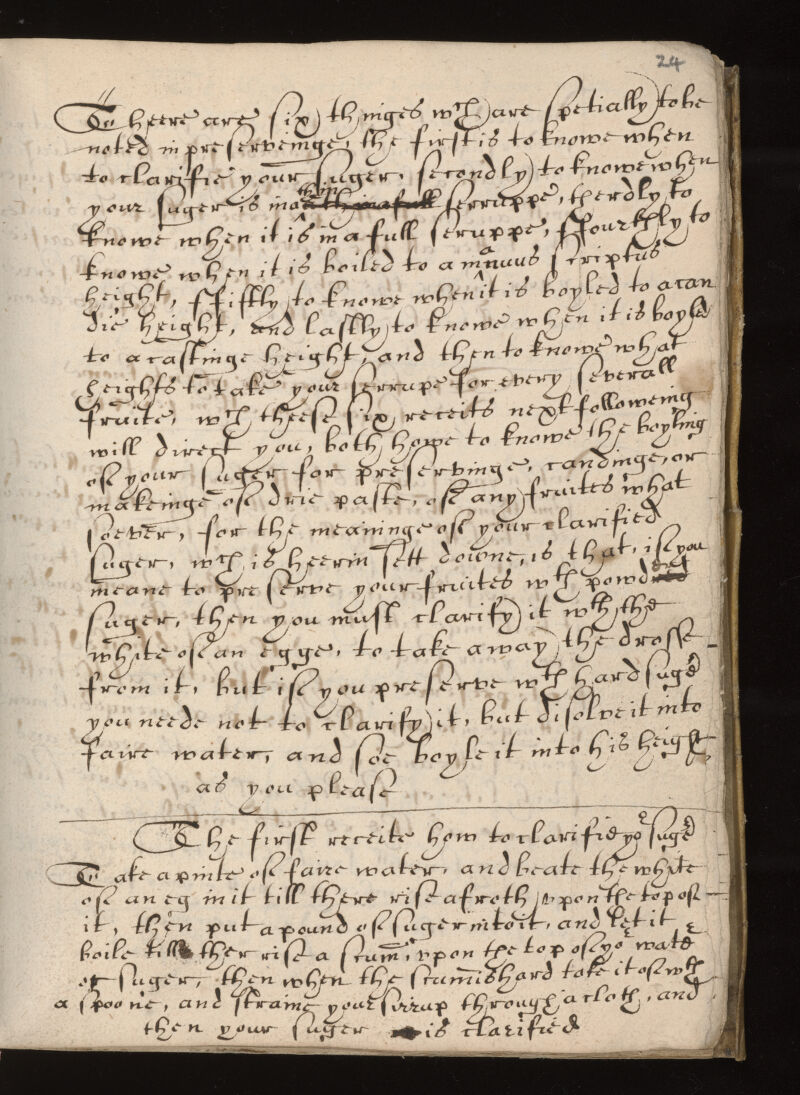 24
Theere are six thinges wch are spetially to be
noted in preserveinge, the first is to knowe when
to clarifie your suger, secondly to knowe when
your suger is in a thin serruppe, therdly to
knowe when it is in a full seruppe, ffourthly to
knowe when it is boiled to a manuus scriptus
height, ffiftly to knowe when it is boyled to a can
die height, and lastly to knowe when it is boyled
to a castinge height, and then to knowe what
heights to take your serrupe for every severall
fruite, wch theese six receits next followeing
will direct you, both howe to knowe the boyling
of your suger for preservinge, candinge, or
makeinge of drie paste, of any fruites what
soever, for the meaninge of your clarified
suger, wch is heerin sett downe, is that, if you
meane to preserve your fruites wth powdered
suger, then you must clarify it wth the
white of an egge, to take away the drosse
from it, but if you preserve wth hard suger
you neede not to clarify it, but disolve it into
faire water, and soe boyle it into his height
as you please
The first receite how to clarifie yor suger
Take a pinte of faire water, and beate the white
of an eg in it till there rise a froth upon the top of
it, then put a pound of suger into it, and let it
boile till ther rise a scum, upon the top of yor water
or suger, then when the scum is hard take it of wth
a spoone, and straine your sirrup through a cloth, and
then your suger is clarified